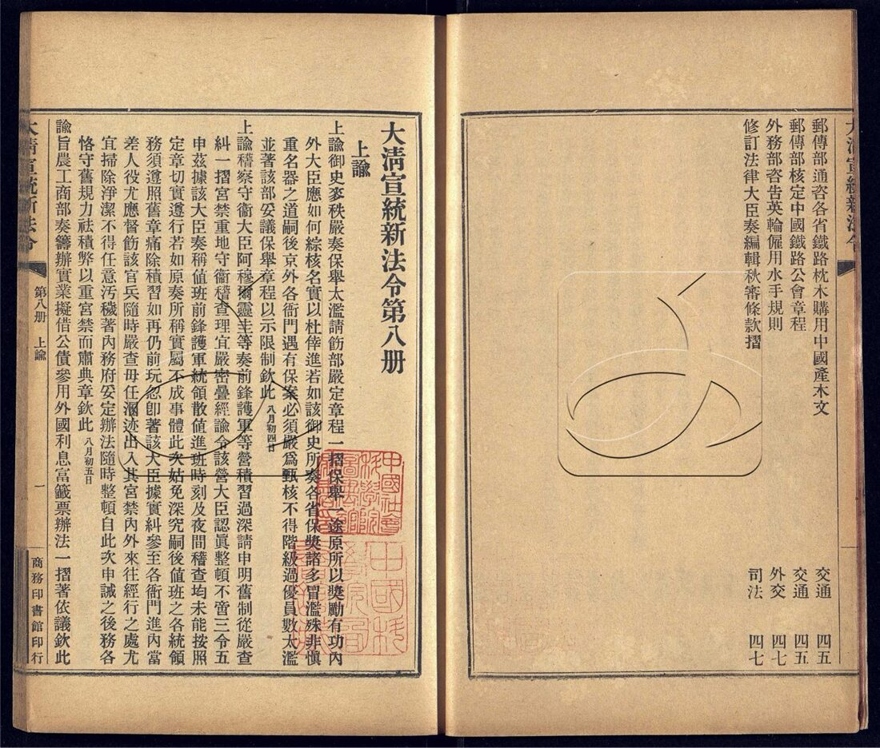 大清宣統新法令
郵傳部通咨各省鐵路枕木購用中國產木文 交通 四五
郵傳部核定中國鐵路公會章程 交通 四五
外務部咨吿英輪僱用水手規則 外交 四七
修訂法律大臣奏編輯秋審條款摺 司法 四七
大清宣統新法令第八册
上諭
上諭御史麥秩嚴奏保舉太濫請飭部嚴定章程一摺保舉一途原所以獎勵有功內
外大臣應如何綜核名實以杜倖進若如該御史所奏各省保獎諸多冒濫殊非愼
重名器之道嗣後京外各衙門遇有保案必須嚴爲甄核不得階級過優員數太濫
並著該部妥議保舉章程以示限制欽此 八月初四日
上諭稽察守衞大臣阿穆爾靈圭等奏前鋒護軍等營積習過深請申明舊制從嚴查
糾一摺宮禁重地守衞稽查理宜嚴密疊經諭令該營大臣認眞整頓不啻三令五
申茲據該大臣奏稱值班前鋒護軍統領散值進班時刻及夜間稽查均未能按照
定章切實遵行若如原奏所稱實屬不成事體此次姑免深究嗣後值班之各統領
務須遵照舊章痛除積習如再仍前玩忽卽著該大臣據實糾參至各衙門進內當
差人役尤應督飭該官兵隨時嚴查毋任溷迹出入其宮禁內外來往經行之處尤
宜掃除淨潔不得任意汚穢著內務府妥定辦法隨時整頓自此次申誡之後務各
恪守舊規力祛積弊以重宮禁而肅典章欽此 八月初五日
諭旨農工商部奏籌辦實業擬借公債參用外國利息富籤票辦法一摺著依議欽此
大清宣統新法令 第八册 上諭 一 商務印書館印行